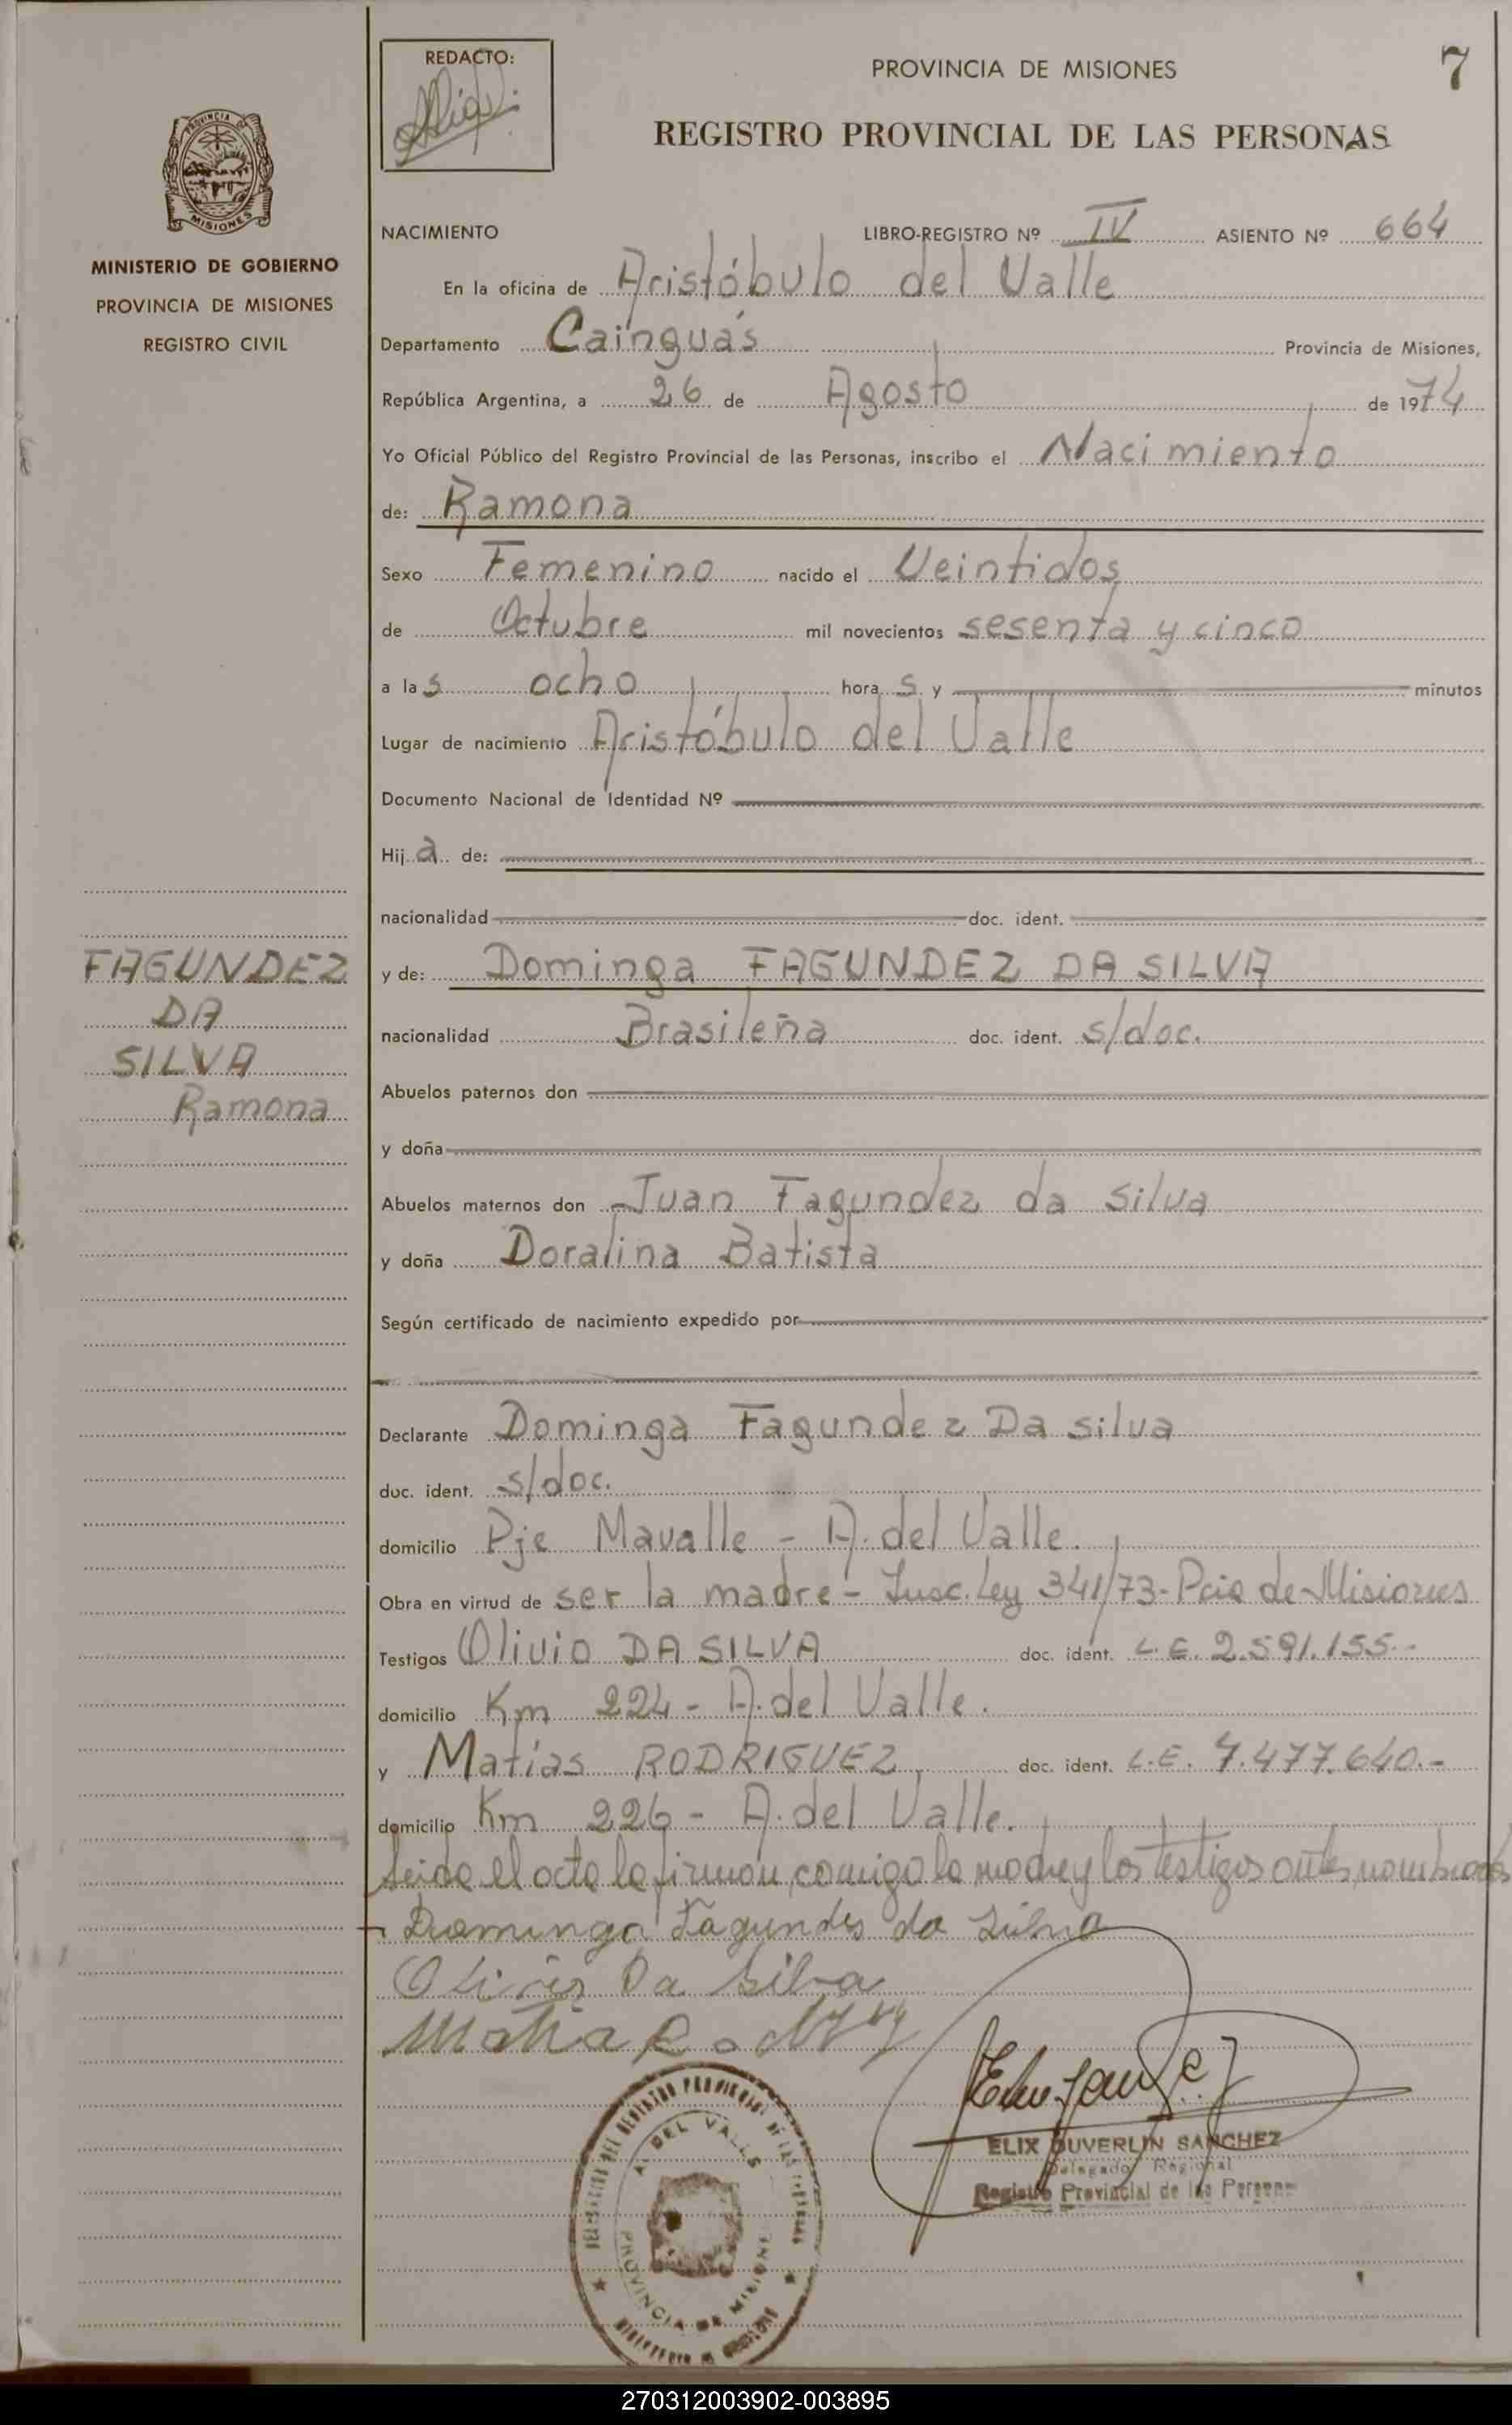 REDACTO:
PROVINCIA DE MISIONES
7
REGISTRO PROVINCIAL DE LAS PERSONAS
PROVINCIA DE
MISIONES
MINISTERIO DE GOBIERNO
PROVINCIA DE MISIONES
REGISTRO CIVIL
NACIMIENTO LIBRO-REGISTRO Nº IV ASIENTO Nº 664
En la oficina de Aristóbulo del Valle
Departamento Cainguás Provincia de Misiones,
República Argentina, a 26 de Agosto de 1974
Yo Oficial Público del Registro Provincial de las Personas, inscribo el Nacimiento
de: Ramona
Sexo Femenino nacido el Veintidos
de Octubre mil novecientos sesenta y cinco
a las ocho horas y minutos
Lugar de nacimiento Aristóbulo del Valle
Documento Nacional de Identidad Nº
Hija de:
nacionalidad doc. ident.
FAGUNDEZ
DA
SILVA
Ramona
y de: Dominga FAGUNDEZ DA SILVA
nacionalidad Brasileña doc. ident. s/doc.
Abuelos paternos don
y doña
Abuelos maternos don Juan Fagundez da Silva
y doña Doralina Batista
Según certificado de nacimiento expedido por
Declarante Dominga Fagundez Da silva
doc. ident. s/doc.
domicilio Pje Mavalle - A. del Valle.
Obra en virtud de ser la madre - Insc. Ley 341/73 - Pcia de Misiones
Testigos Olivio DA SILVA doc. ident. L.E. 2.591.155.-
domicilio Km 224 - A. del Valle.
y Matías RODRIGUEZ doc. ident. L.E. 7.477.640.-
domicilio Km 226 - A. del Valle.
Leida el acta la firman comigo la madre y los testigos antes nombrados
Dominga Fagundes da Silva
Olivio Da Silva
ELIX DUVERLIN SANCHEZ
Delegado Regional
Registro Provincial de las Personas
DELEGACION DEL REGISTRO PROVINCIAL DE LAS PERSONAS
A. DEL VALLE
PROVINCIA DE MISIONES
270312003902-003895